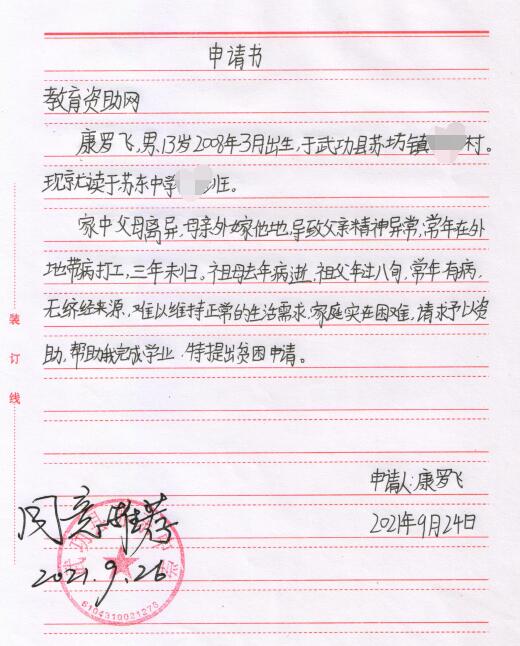 申请书
教育资助网
康罗飞,男,13岁2008年3月出生,于武功县苏坊镇 村。
现就读于苏东中学 班。
家中父母离异,母亲外嫁他地,导致父亲精神异常,常年在外
地带病打工,三年未归。祖母去年病逝,祖父年过八旬,常年有病,
无经济来源,难以维持正常的生活需求,家庭实在困难,请求予以资
助,帮助我完成学业,特提出贫困申请。
装
订
线
申请人:康罗飞
2021年9月24日
同意推荐
2021.9.26
武功县
6104310021276